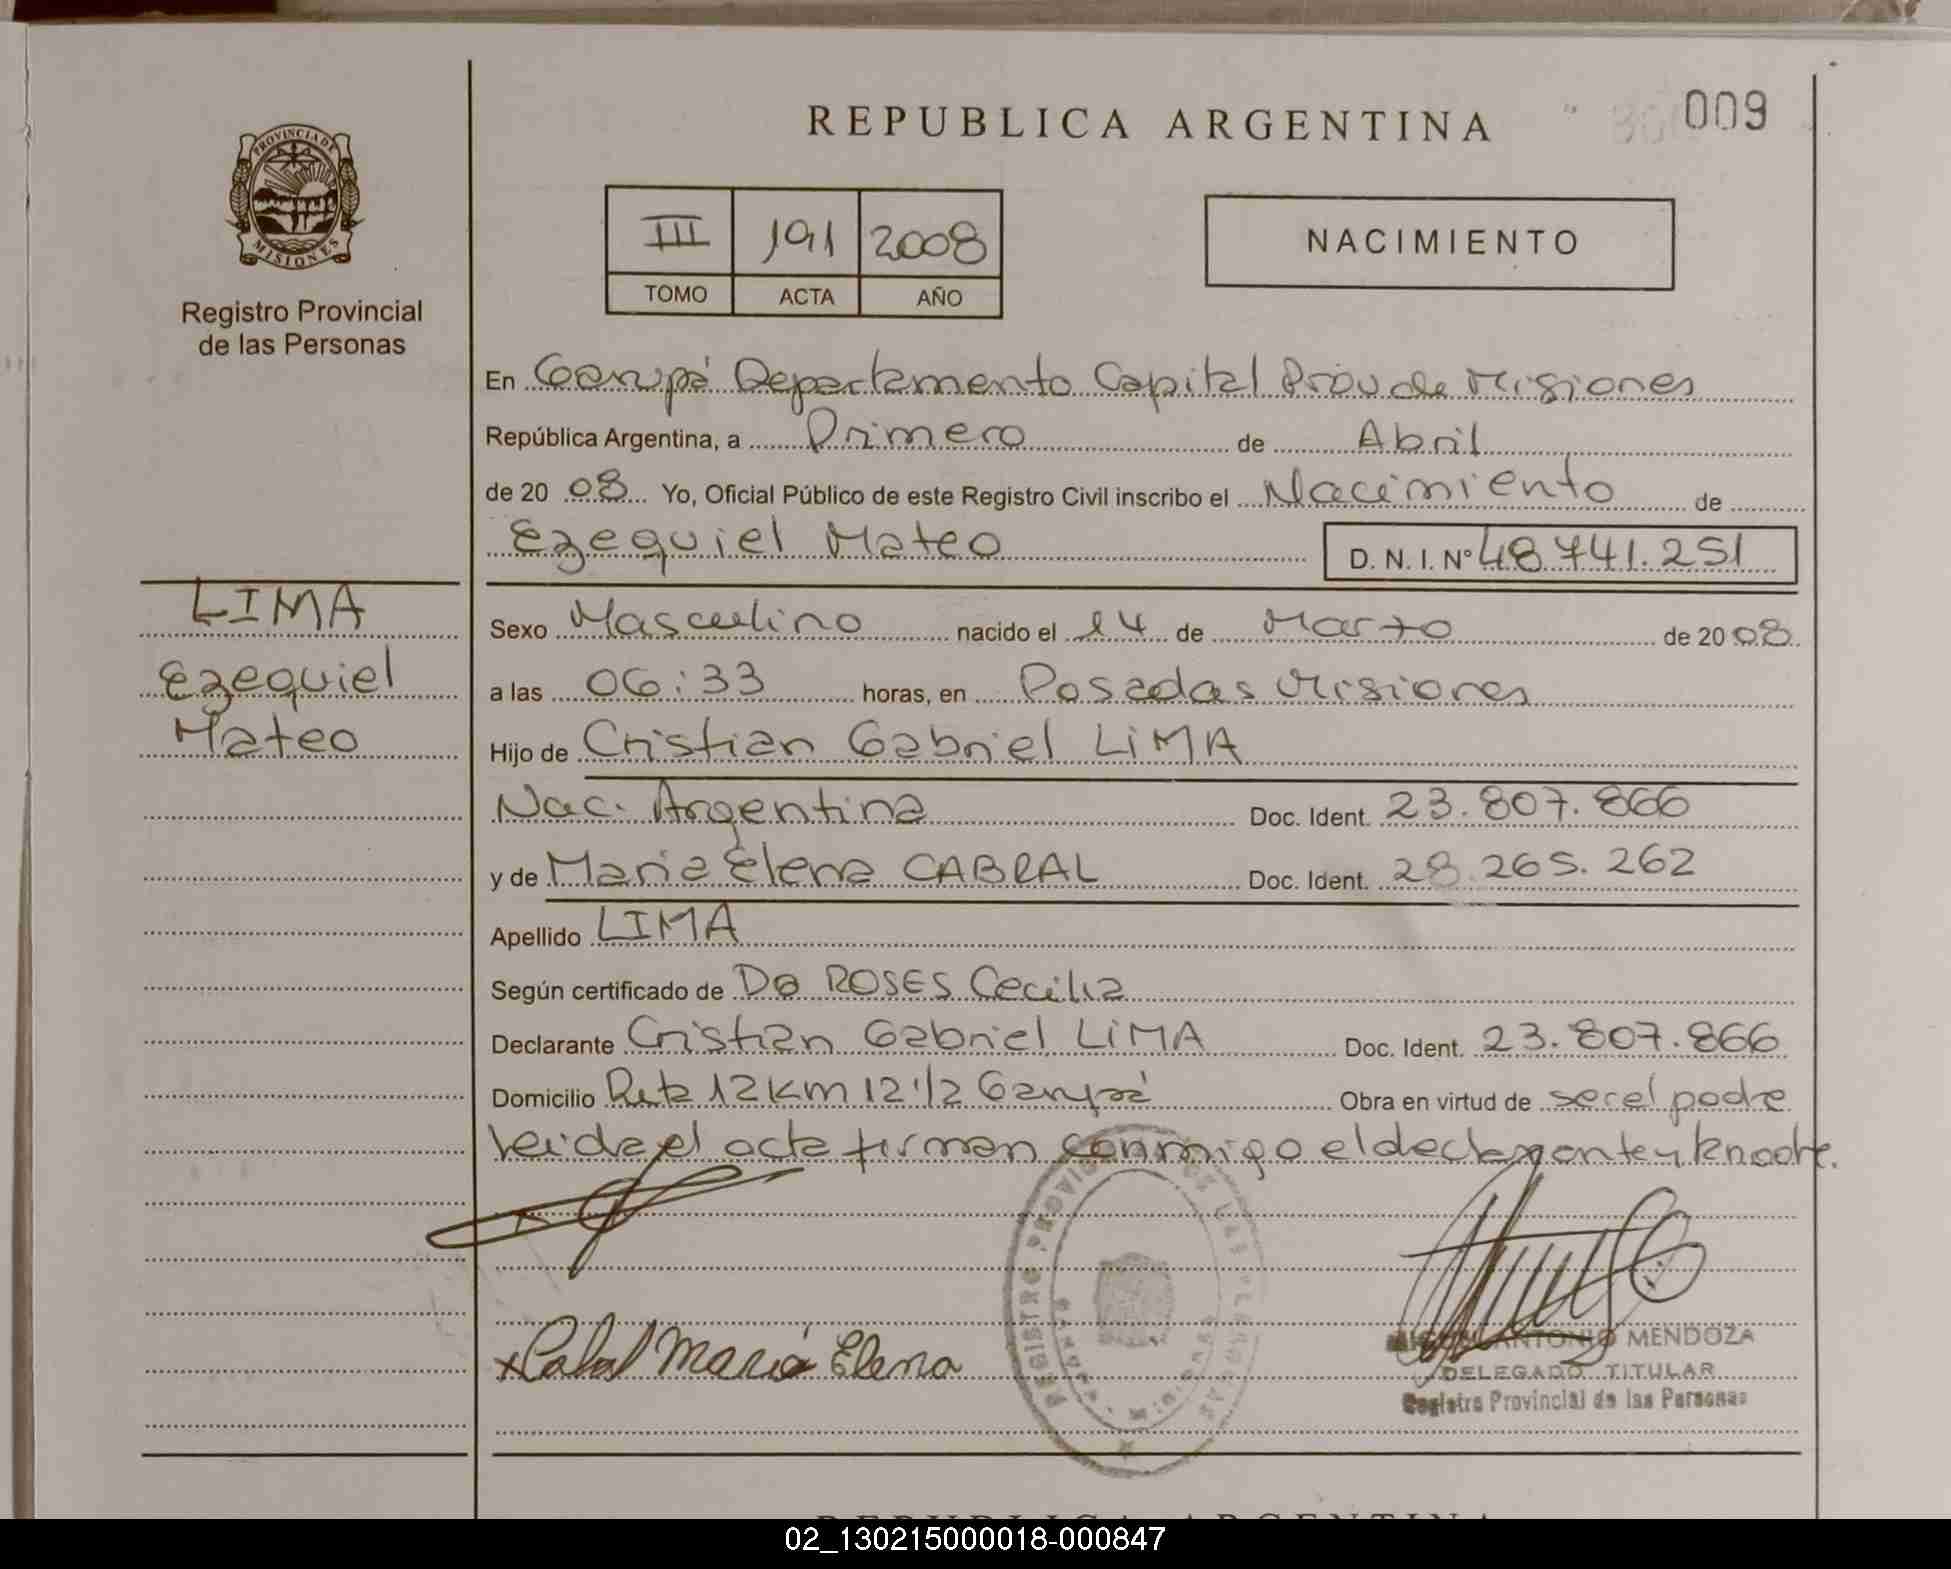 REPUBLICA ARGENTINA
009
PROVINCIA DE
MISIONES
Registro Provincial
de las Personas
III 191 2008
TOMO ACTA AÑO
NACIMIENTO
En Garupá Departamento Capital Prov de Misiones
República Argentina, a Primero de Abril
de 20 08 Yo, Oficial Público de este Registro Civil inscribo el Nacimiento de
Ezequiel Mateo D. N. I. Nº 48.741.251
LIMA
Ezequiel
Mateo
Sexo Masculino nacido el 14 de Marzo de 20 08
a las 06:33 horas, en Posadas Misiones
Hijo de Cristian Gabriel LIMA
Nac. Argentina Doc. Ident. 23.807.866
y de Maria Elena CABRAL Doc. Ident. 28.265.262
Apellido LIMA
Según certificado de Da ROSES Cecilia
Declarante Cristian Gabriel LIMA Doc. Ident. 23.807.866
Domicilio Ruta 12 km 12 1/2 Garupá Obra en virtud de ser el padre
leida el acta firman conmigo el declarante y la madre.
REGISTRO PROVINCIAL DE LAS PERSONAS
x Cabral Maria Elena
ANTONIO MENDOZA
DELEGADO TITULAR
Registro Provincial de las Personas
REPUBLICA ARGENTINA
02_130215000018-000847